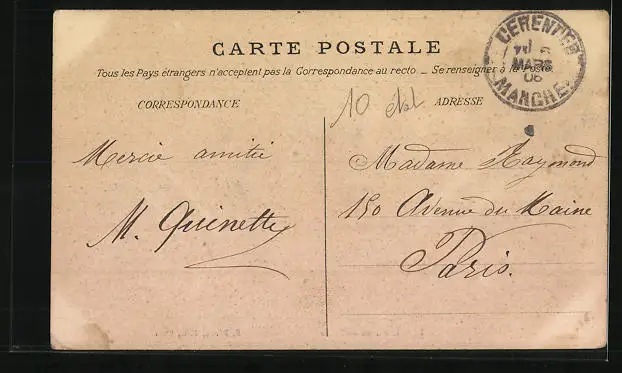 CARTE POSTALE
Tous les Pays étrangers n'acceptent pas la Correspondance au recto _ Se renseigner à la Poste
CORRESPONDANCE
ADRESSE
10
CERENCES
MARS
06
MANCHE
Mercie amitié
M. Guinette
Madame Raymond
150 Avenue du Maine
Paris.